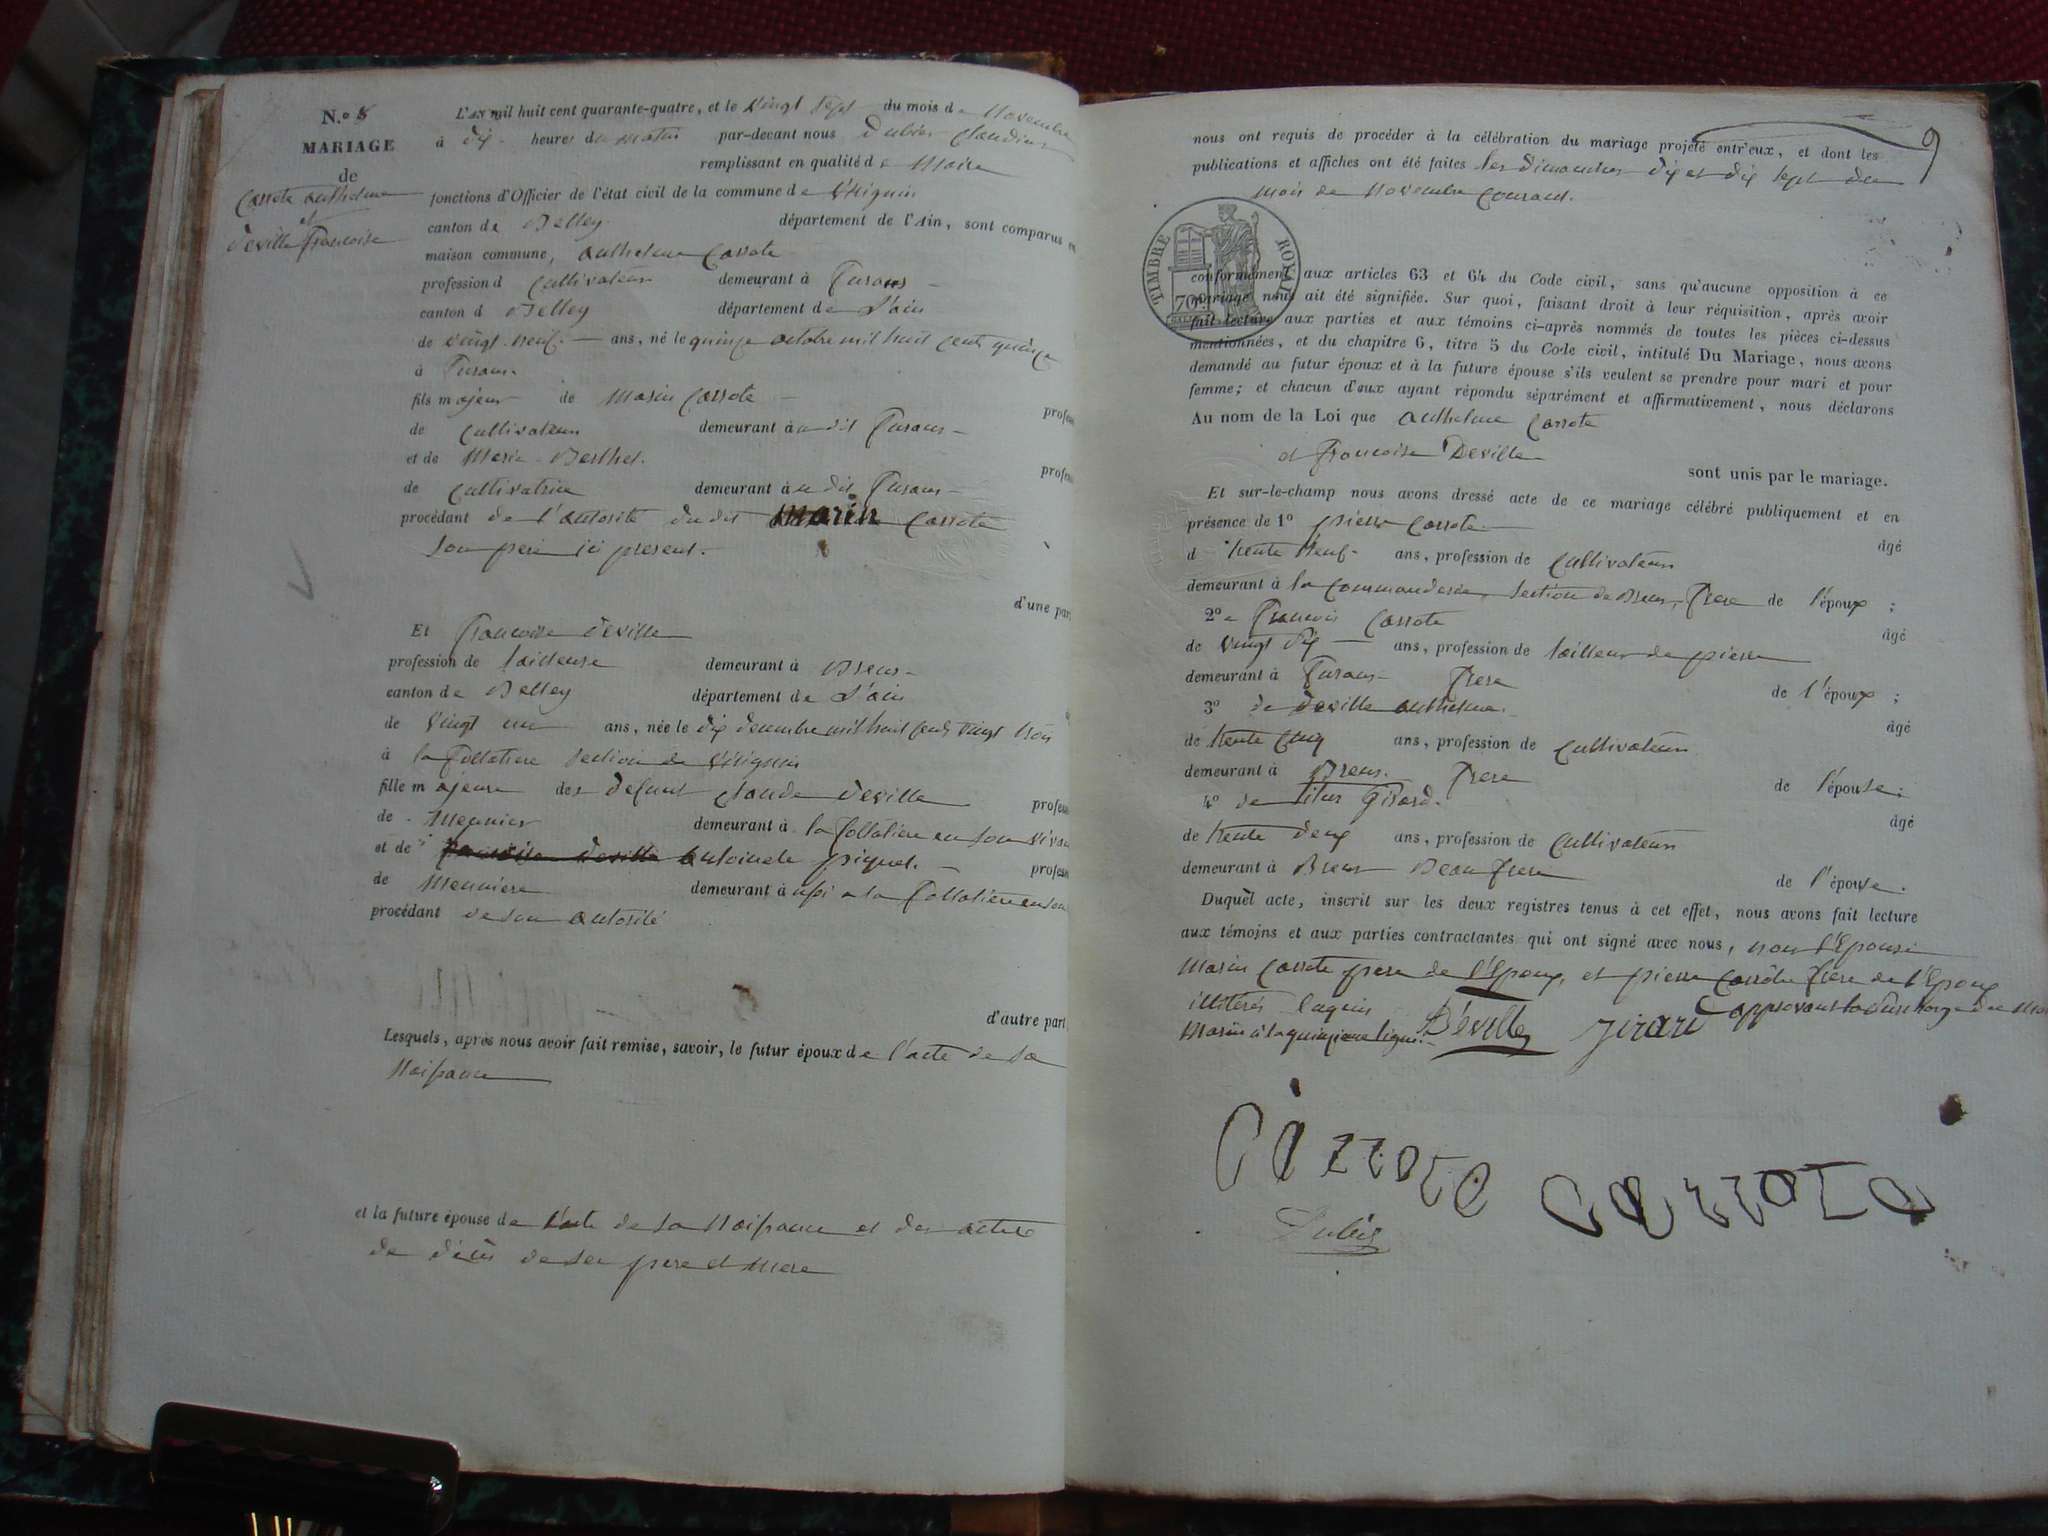 N.o 8
MARIAGE
de
Carrote Anthelme
et
Deville Françoise
L'AN mil huit cent quarante-quatre, et le vingt sept du mois de Novembre
à dix heures du matin par-devant nous Dubois Claudius
remplissant en qualité de Maire
fonctions d'Officier de l'état civil de la commune de Virignin
canton de Belley département de l'Ain, sont comparus en
maison commune, Anthelme Carrote
profession d Cultivateur demeurant à Parans
canton d Belley département de L'ain
de vingt neuf ans, né le quinze octobre mil huit cent quinze
à
fils majeur de Marin Carrote
profess
de Cultivateur demeurant au dit
et de Marie Berthet.
profess
de Cultivatrice demeurant au dit
procédant de l'autorité du dit Marin Carrote
son père ici présent.
d'une part
Et Françoise Deville
profession de tailleuse demeurant à Brens
canton de Belley département de L'ain
de vingt un ans, née le dix décembre mil huit cent vingt trois
à la section de Virignin
fille majeure des défunt Claude Deville profess
de Meunier demeurant à la en son vivant
et de Antoinete piquet. profess
de Meunière demeurant aussi a la en son
procédant de son autorité
d'autre part
Lesquels, après nous avoir fait remise, savoir, le futur époux de l'acte de sa
Naissance
et la future épouse de l'acte de sa Naissance et des actes
de décès de ses père et mère
9
nous ont requis de procéder à la célébration du mariage projeté entr'eux, et dont les
publications et affiches ont été faites les Dimanches dix et dix sept du
mois de Novembre courant.
TIMBRE ROYAL
70c
conformément aux articles 63 et 64 du Code civil, sans qu'aucune opposition à ce
mariage nous ait été signifiée. Sur quoi, faisant droit à leur réquisition, après avoir
fait lecture aux parties et aux témoins ci-après nommés de toutes les pièces ci-dessus
mentionnées, et du chapitre 6, titre 5 du Code civil, intitulé Du Mariage, nous avons
demandé au futur époux et à la future épouse s'ils veulent se prendre pour mari et pour
femme; et chacun d'eux ayant répondu séparément et affirmativement, nous déclarons
Au nom de la Loi que Anthelme Carrote
et Françoise Deville
sont unis par le mariage.
Et sur-le-champ nous avons dressé acte de ce mariage célébré publiquement et en
présence de 1o pierre Carrote
âgé
d trente neuf ans, profession de Cultivateur
demeurant à la Commanderie, section de Brens, frere de l'époux ;
2o de François Carrote
âgé
de vingt six ans, profession de tailleur de pierre
demeurant à frere de l'époux ;
3o de Deville Anthelme.
âgé
de trente cinq ans, profession de Cultivateur
demeurant à Brens. frere de l'épouse;
4o de Titus Girard.
âgé
de trente deux ans, profession de Cultivateur
demeurant à Brens Beau frere de l'épouse.
Duquel acte, inscrit sur les deux registres tenus à cet effet, nous avons fait lecture
aux témoins et aux parties contractantes qui ont signé avec nous, non l'Epouse
Marin Carrote père de l'Epoux, et pierre Carrote frère de l'Epoux
illitérés approuvant la surcharge du mot
Marin à la quinzieme ligne. Deville girard
Carrote Carrote
Dubois